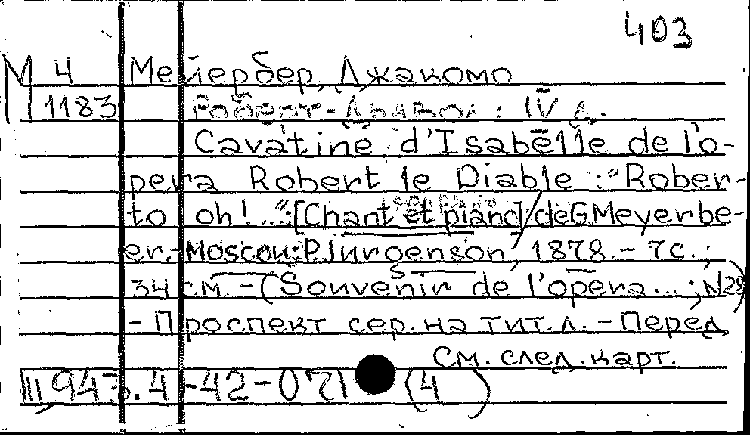 403
М 4 Мейербер, Джакомо
1183 Роберт-Дьявол : IV д.
Cavatine d'Isabelle de l'o-
pera Robert le Diable : "Rober-
to oh! ..." : [Chant et piano] / de G Meyerbe-
er. - Moscou : P. Jurgenson, 1878. - 7 с. ;
34 см - (Souvenir de l'opera... ; № 29)
- Проспект сер. на тит. л. - Перед
См. след. карт.
III, 943.4-42-071 (4)